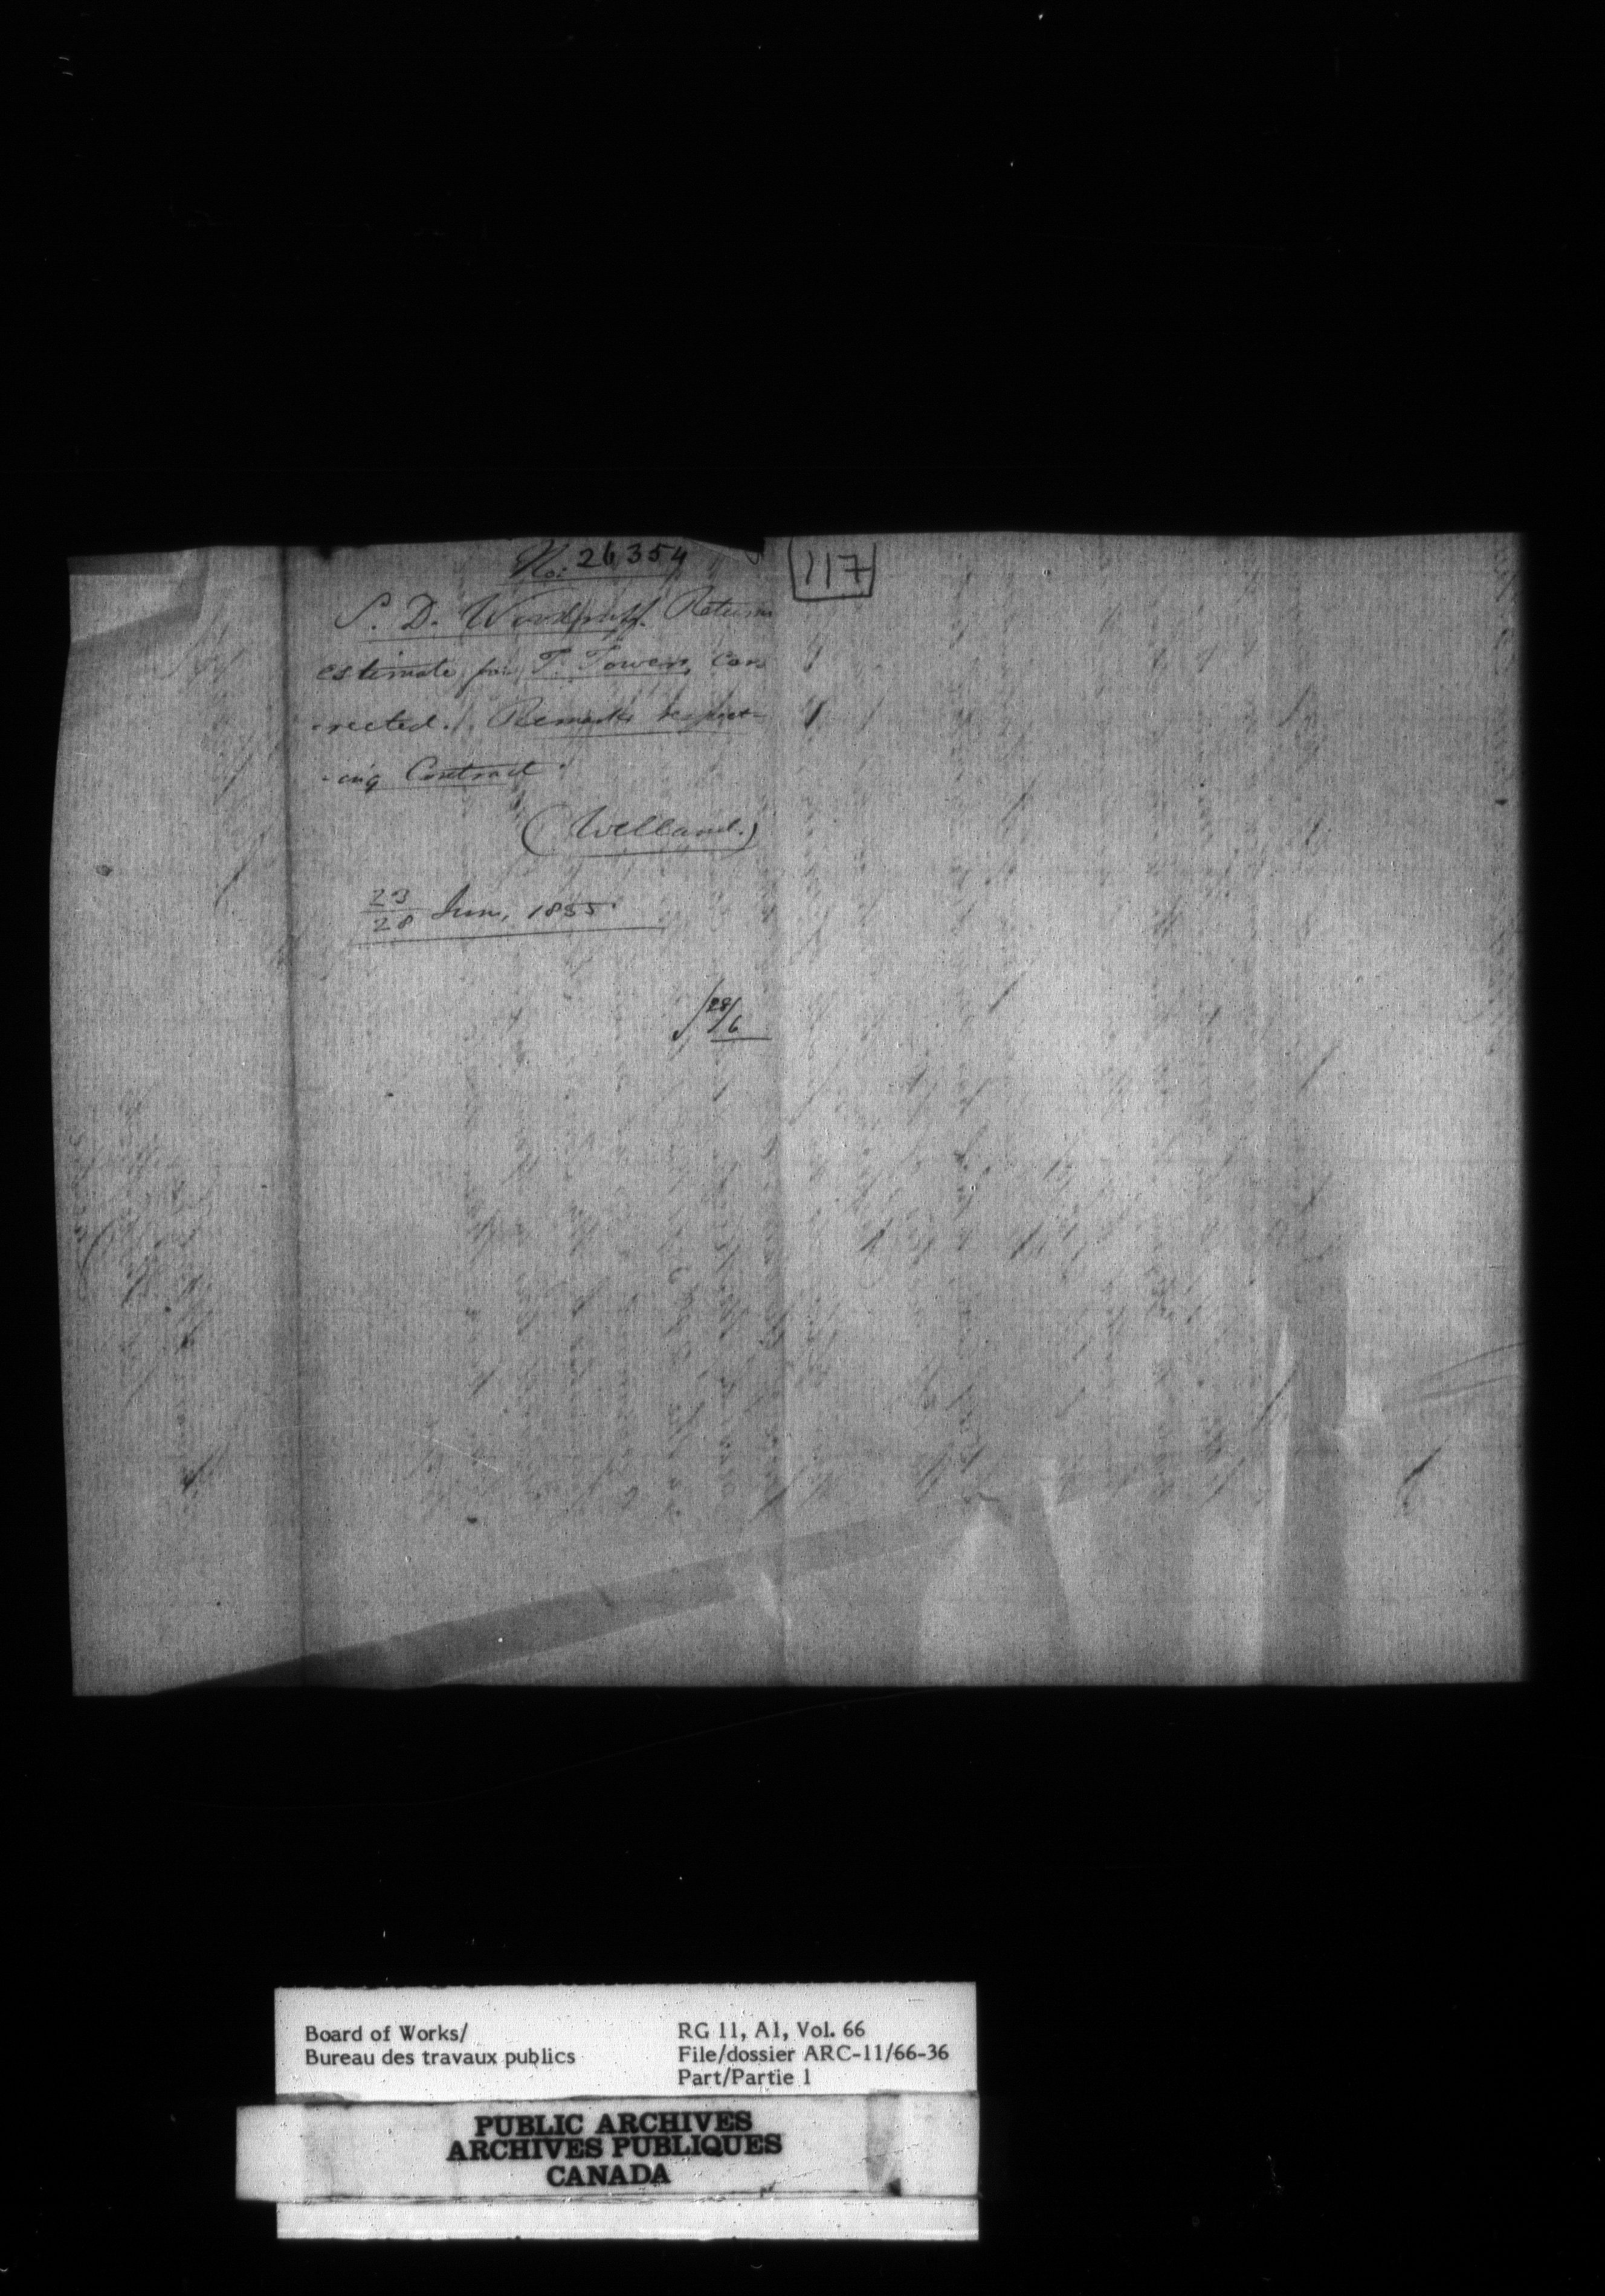 No: 26354
117
S. D. Woodruff. Returns
estimate for T. Towers, cor
-rected. Remarks respect-
-ing Contract.
(Welland.)
23/28 Jun, 1855.
28/6
Board of Works/
Bureau des travaux publics
RG 11, A1, Vol. 66
File/dossier ARC-11/66-36
Part/Partie 1
PUBLIC ARCHIVES
ARCHIVES PUBLIQUES
CANADA